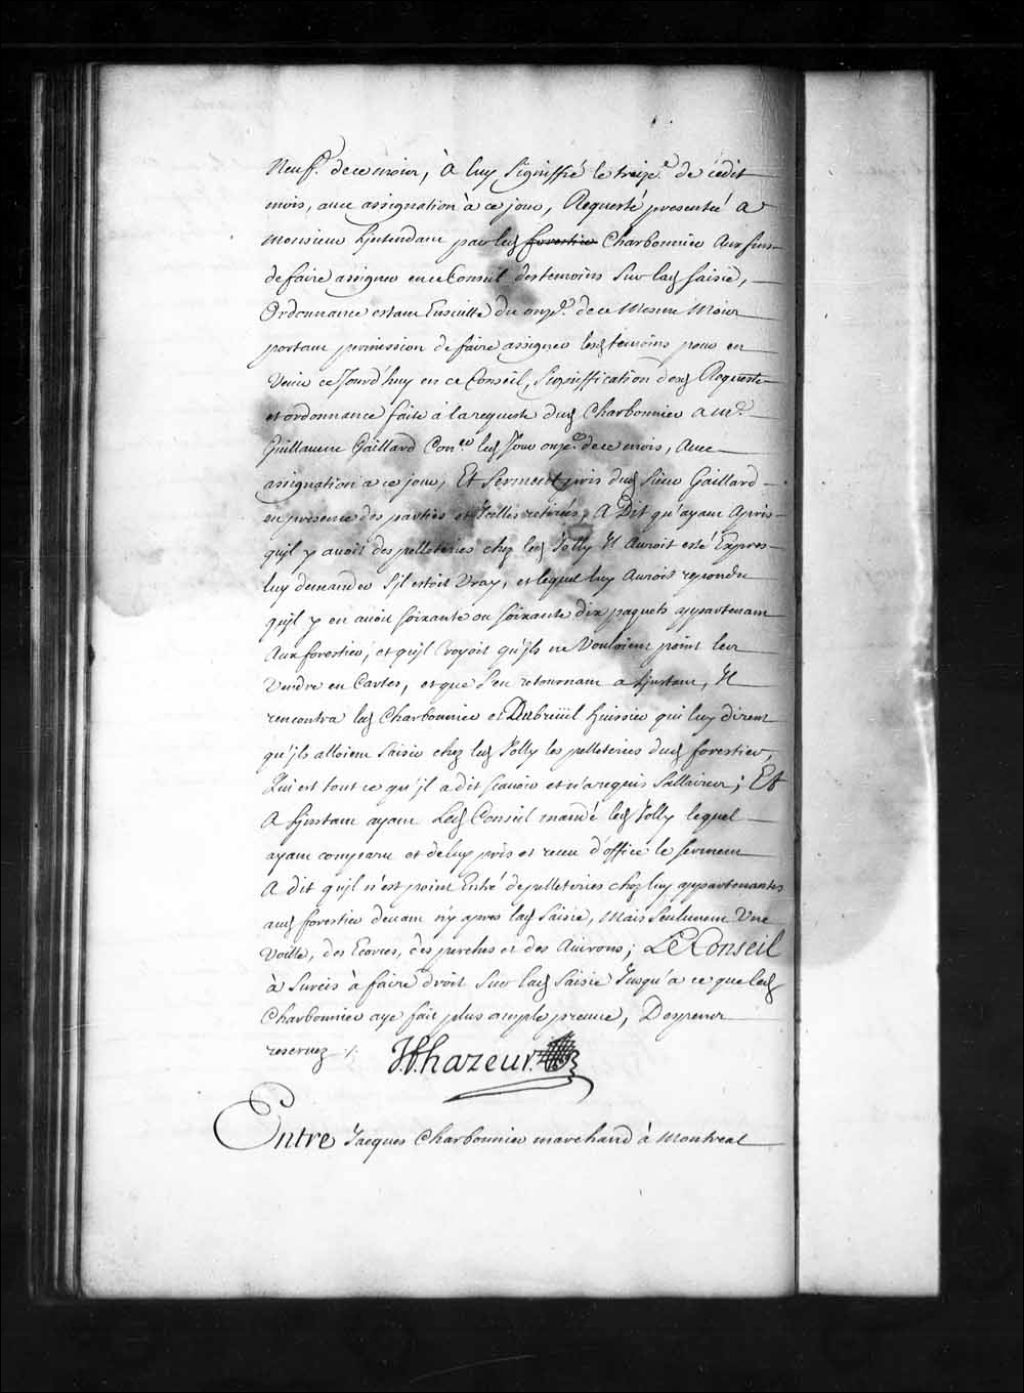 Neuf.e de ce mois, A luy signiffié le treize.e de cedit
mois, avec assignation à ce jour, Requeste presentée A
Monsieur Lintendant par led. forestier Charbonnier Aux fins
de faire assigner en ce Conseil des temoins Sur lad. saisie,
Ordonnance estant Ensuitte du onz.e de ce Mesme Mois
portant permission de faire assigner lesd. temoins pour en
Venir ce Jourd'huy en ce Conseil, Signiffication desd. Requeste
et ordonnance faite à la requeste dud. Charbonnier a m.e
Guillaume Gaillard Con.er led. Jour onze.e de ce mois, Avec
assignation a ce jour, Et Serment pris dud. Sieur Gaillard
en presence des parties et Icelles retirées, A Dit qu'ayant Apris
qu'jl y avoit des pelleteries chez led. Jolly Il Auroit esté Expres
luy demander s'jl estoit Vray, et lequel luy Auroit repondu
qu'jl y en avoit soixante ou soixante dix paquets appartenant
Aux forestier, et qu'jl Croyoit qu'jls ne Vouloient point leur
Vendre en Cartes, et que s'en retournant a Linstant, Il
rencontra led. Charbonnier et Dubreüil huissier qui luy dirent
qu'jls alloient saisir chez led. Jolly les pelleteries dud. forestier,
Qui est tout ce qu'jl a dit scavoir et n'a requis sallaires; Et
A Linstant ayant Led. Conseil mandé led. Jolly lequel
ayant comparu et de luy pris et receu d'office le serment
A dit qu'jl n'est point Entré de pelleteries chez luy appartenantes
aud. forestier devant n'y apres lad. Saisie, Mais seulement Une
Voille, des Ecorces, des perches et des Avirons; Le Conseil
à Surcis à faire droit Sur lad. Saisie Jusqu'a ce que led.
Charbonnier aye fait plus ample preuve, Depens
reservez ./.
H. hazeur.
Entre Jacques Charbonnier marchand à Montreal